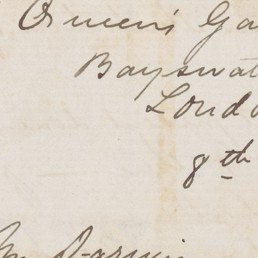 Queen's Ga
Bayswat
Londo
8th
Darwin